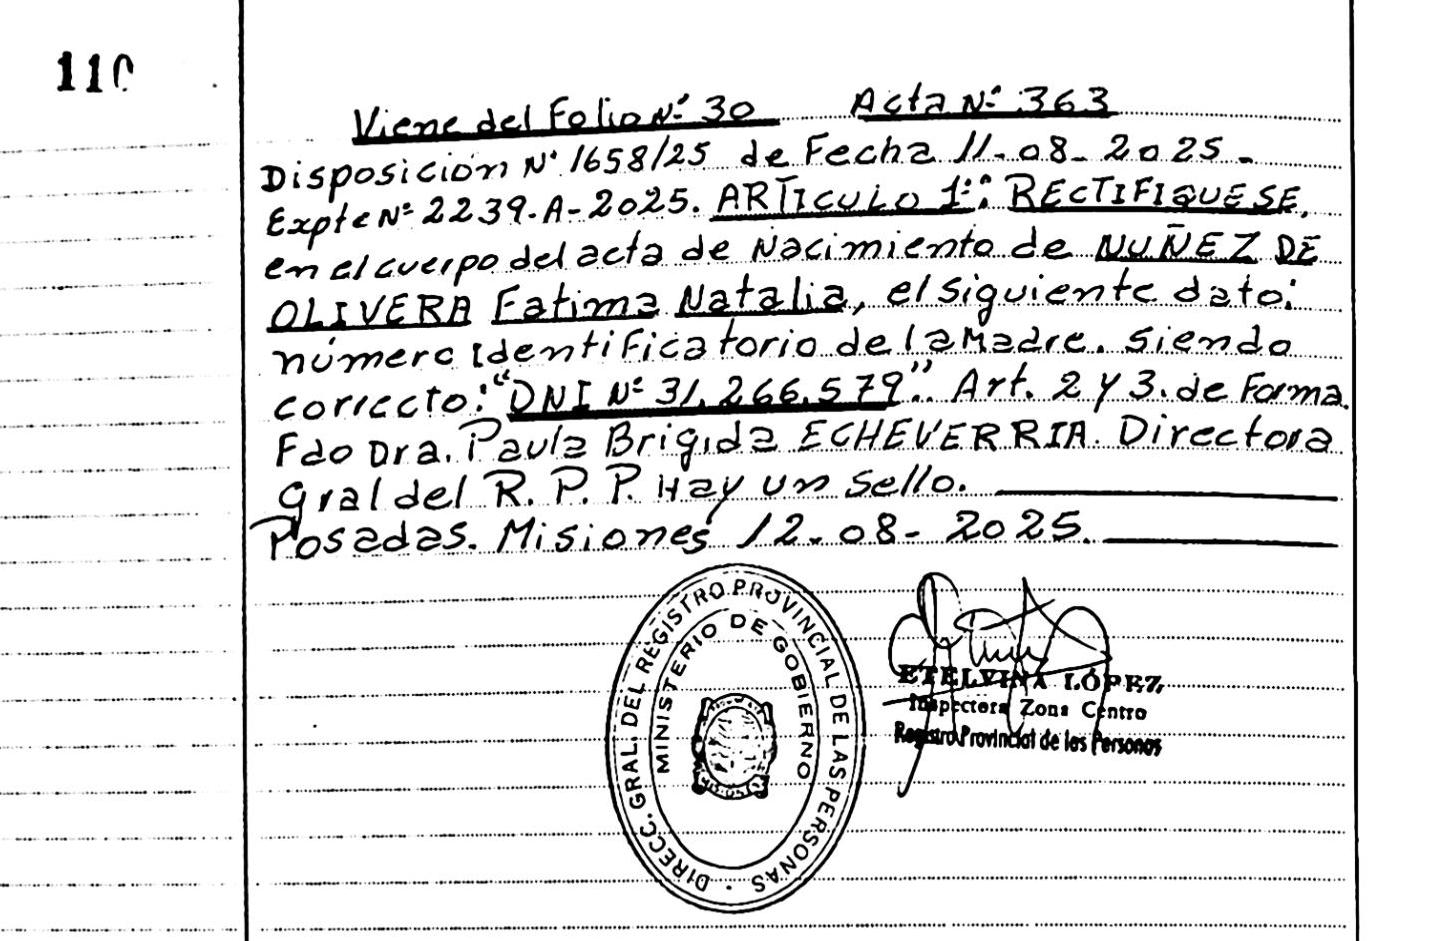 110
Viene del Folio Nº 30 Acta Nº 363
Disposición Nº 1658/25 de Fecha 11-08-2025-
Expte Nº 2239-A-2025. ARTICULO 1º: RECTIFIQUESE,
en el cuerpo del acta de Nacimiento de NUÑEZ DE
OLIVERA Fatima Natalia, el siguiente dato:
número Identificatorio de la Madre. Siendo
correcto: "DNI Nº 31.266.579". Art. 2 y 3. de Forma.
Fdo Dra. Paula Brigida ECHEVERRIA. Directora
Gral del R. P. P. Hay un sello.
Posadas. Misiones 12-08-2025.
DIRECC. GRAL. DEL REGISTRO PROVINCIAL DE LAS PERSONAS
MINISTERIO DE GOBIERNO
ETELVINA LÓPEZ
Inspectora Zona Centro
Registro Provincial de las Personas